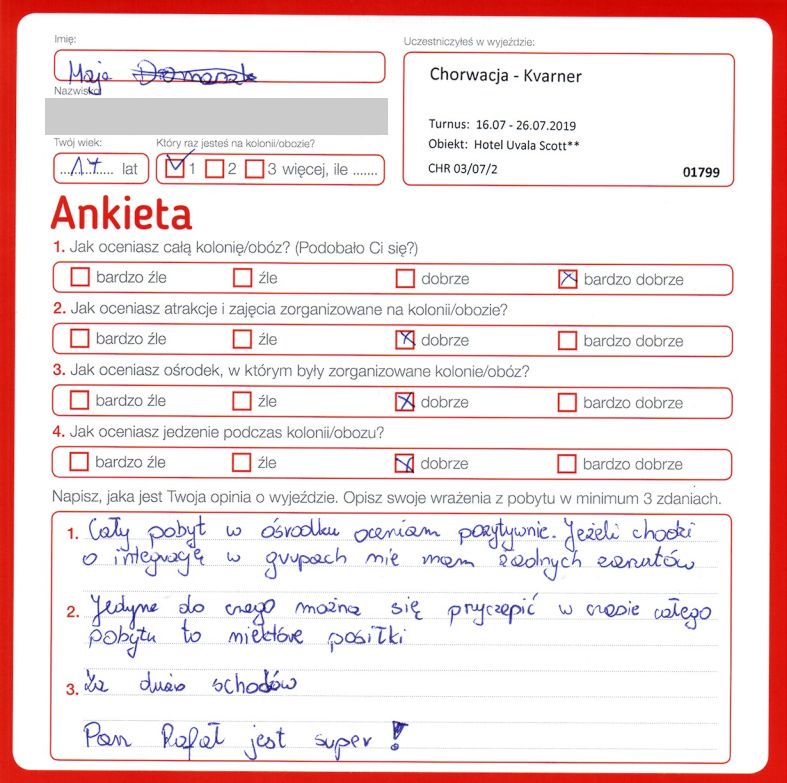 Imię:
Maja
Nazwisko
Twój wiek:
Który raz jesteś na kolonii/obozie?
....17.... lat
1 2 3 więcej, ile .......
Uczestniczyłeś w wyjeździe:
Chorwacja - Kvarner
Turnus: 16.07 - 26.07.2019
Obiekt: Hotel Uvala Scott**
CHR 03/07/2
01799
Ankieta
1. Jak oceniasz całą kolonię/obóz? (Podobało Ci się?)
bardzo źle źle dobrze bardzo dobrze
2. Jak oceniasz atrakcje i zajęcia zorganizowane na kolonii/obozie?
bardzo źle źle dobrze bardzo dobrze
3. Jak oceniasz ośrodek, w którym były zorganizowane kolonie/obóz?
bardzo źle źle dobrze bardzo dobrze
4. Jak oceniasz jedzenie podczas kolonii/obozu?
bardzo źle źle dobrze bardzo dobrze
Napisz, jaka jest Twoja opinia o wyjeździe. Opisz swoje wrażenia z pobytu w minimum 3 zdaniach.
1. Cały pobyt w ośrodku oceniam pozytywnie. Jeżeli chodzi
o integrację w grupach nie mam żadnych zarzutów
2. Jedyne do czego można się przyczepić w czasie całego
pobytu to niektóre posiłki
3. Za dużo schodów
Pan Rafał jest super!